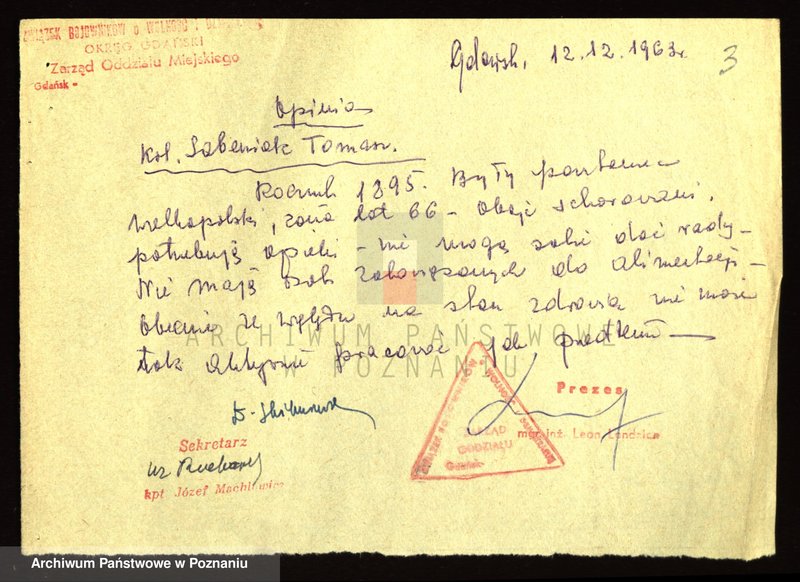 ZWIĄZEK BOJOWNIKÓW o WOLNOŚĆ i DEMOKRACJĘ
OKRĘG GDAŃSKI
Zarząd Oddziału Miejskiego
Gdańsk -
Gdańsk, 12.12.1963r.
3
Opinia
Kol. Tomasz.
Rocznik 1895. Były powstaniec
wielkopolski, żona lat 66 – oboje schorowani.
potrzebują opieki – nie mogą sobie dać rady –
Nie mają osób zobowiązanych do alimentacji –
Obecnie ze względu na stan zdrowia nie może
tak aktywnie pracować jak przedtem –
ARCHIWUM PAŃSTWOWE
W POZNANIU
Prezes
mgr inż. Leon
ZWIĄZEK BOJOWNIKÓW o WOLNOŚĆ i DEMOKRACJĘ
ZARZĄD
ODDZIAŁU
Gdańsk
Sekretarz
kpt Józef
Archiwum Państwowe w Poznaniu